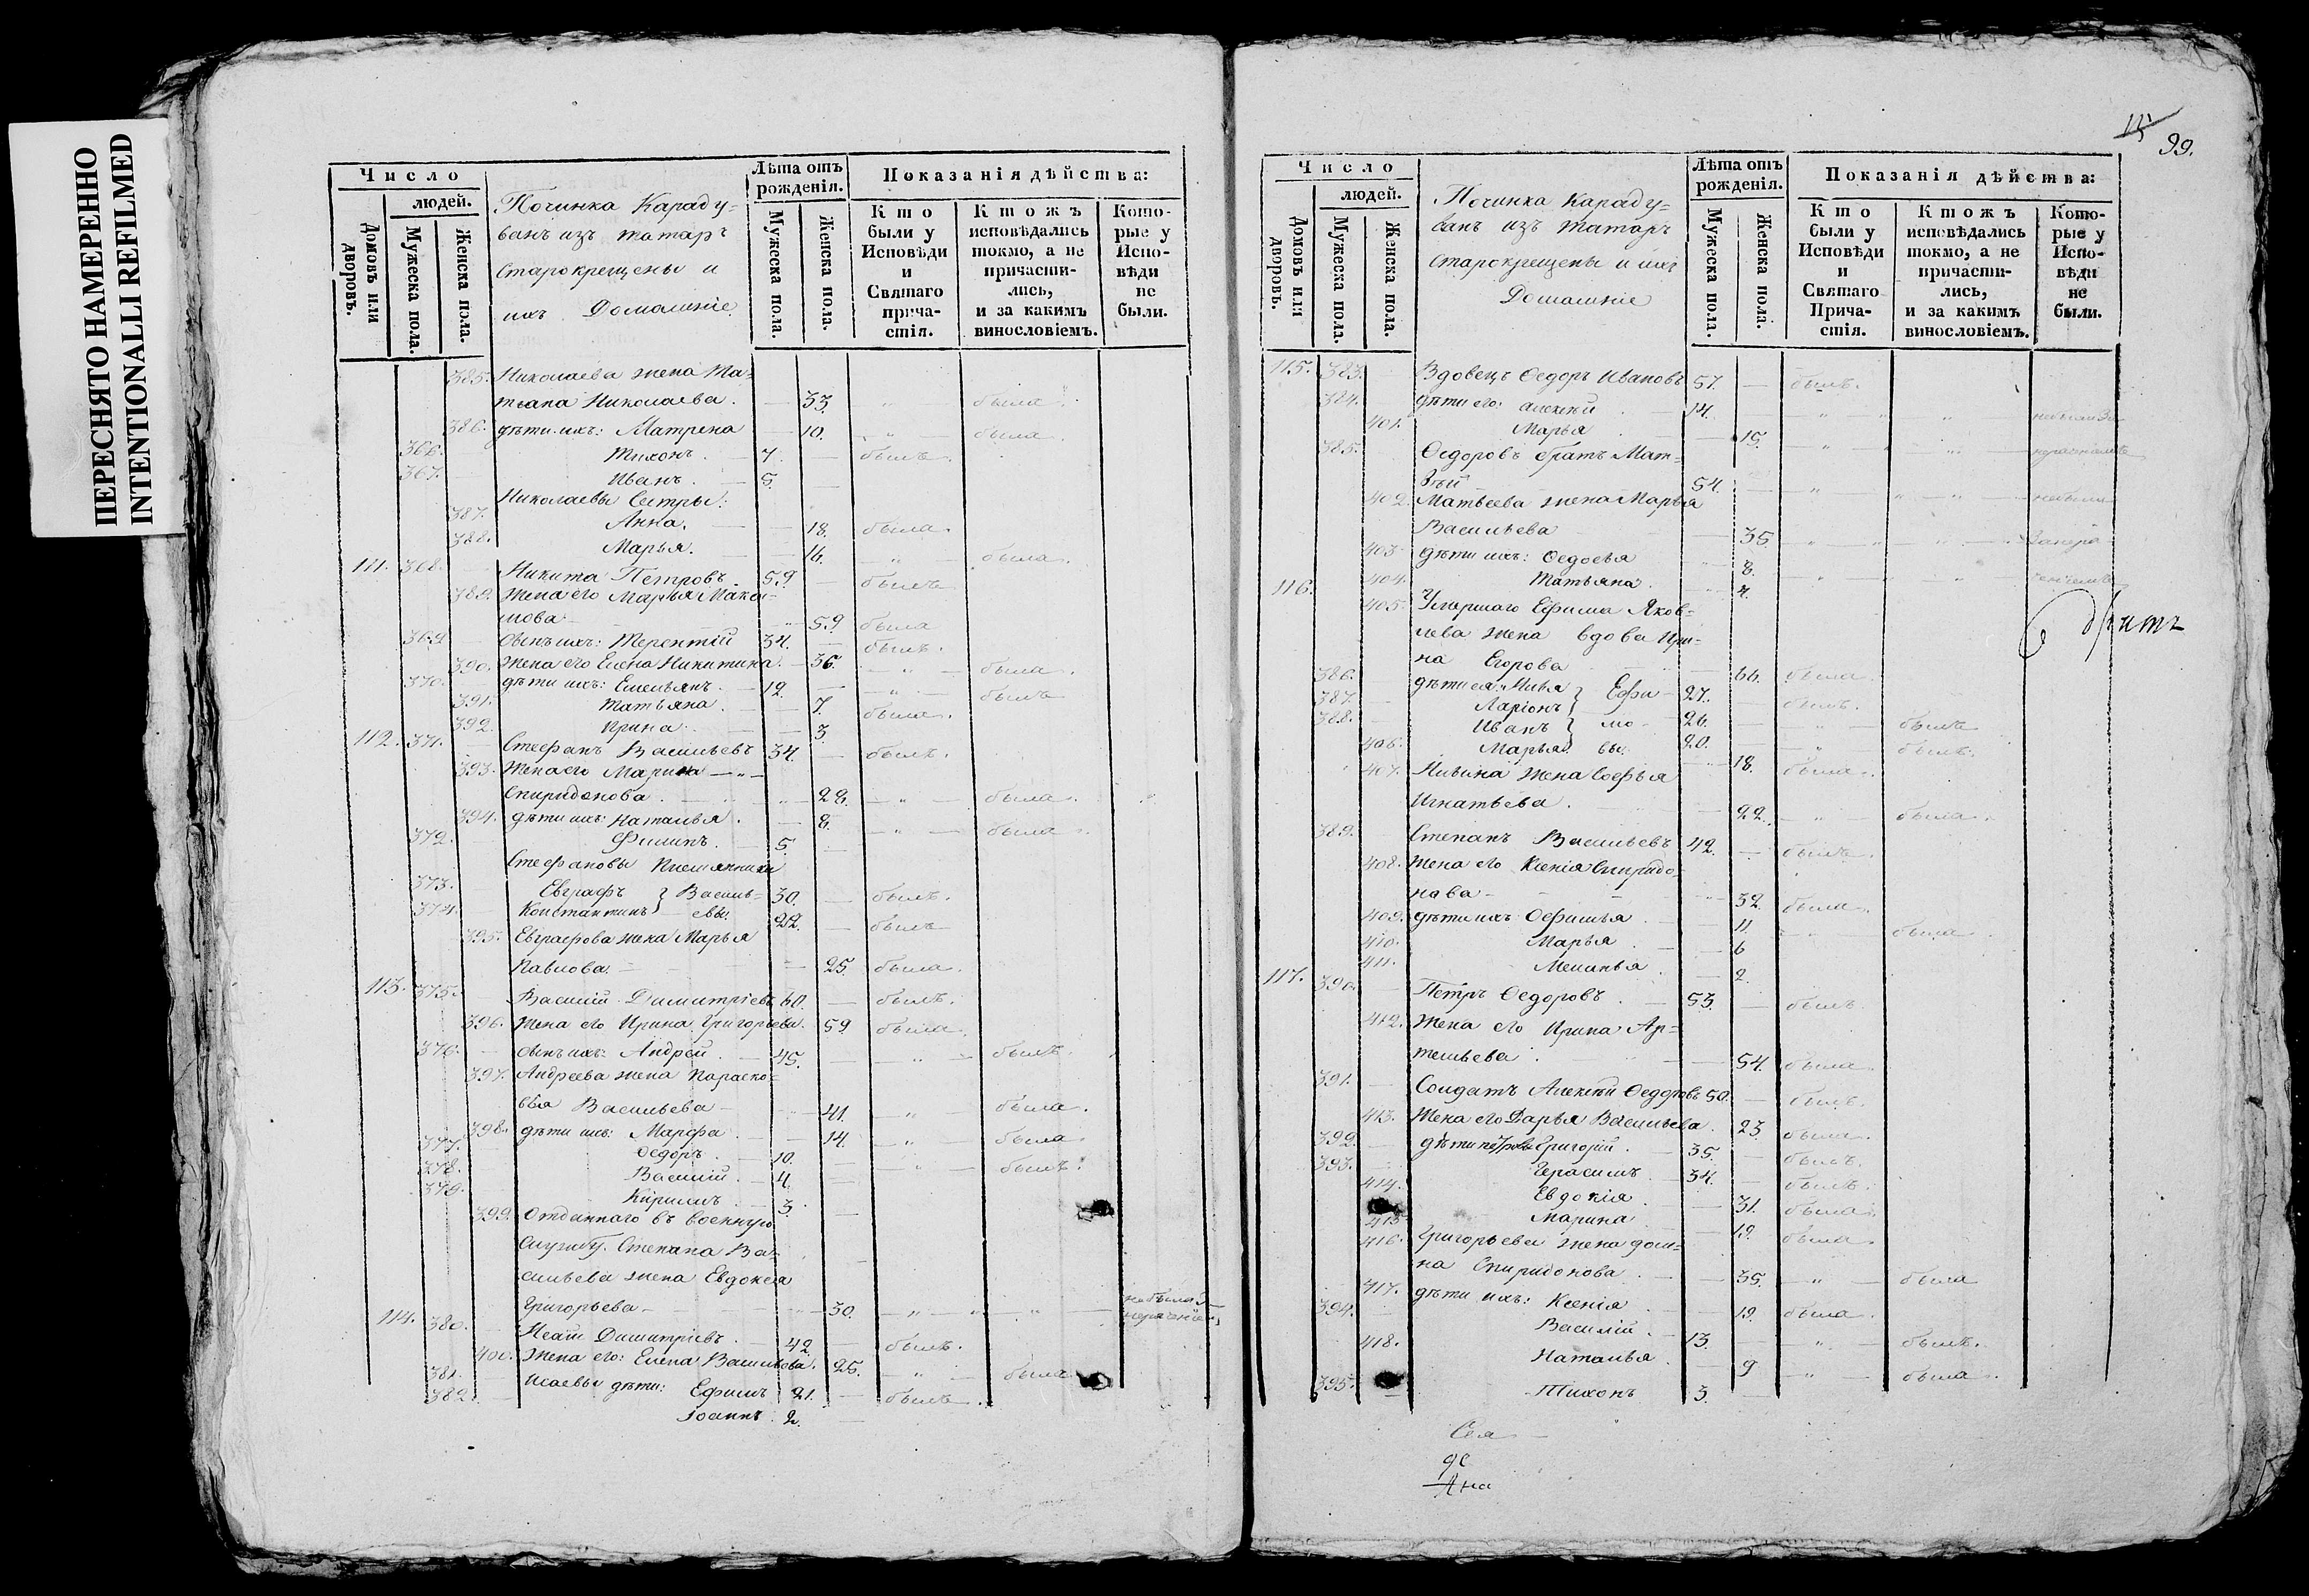 ПЕРЕСНЯТО НАМЕРЕННО
INTENTIONALLI REFILMED
Число
людей.
Домовъ или дворовъ.
Мужеска пола.
Женска пола.
Починка Караду=
ванъ изъ татаръ
Старокрещены и
ихъ Домашніе
Лѣта отъ рожденія.
Мужеска пола.
Женска пола.
Показанія дѣйства:
Кто были у Исповѣди и Святаго прича-стія.
Ктожъ исповѣдались токмо, а не причасти-лись, и за какимъ винословіемъ.
Кото-рые у Испо-вѣди не были.
385. Николаева жена Та=
тьяна Николаева. — 33. — " — была.
386. дѣти ихъ: Матрена — 10. — " — была.
366. Тихонъ. — 7. — былъ.
367. Иванъ. — 5. —
Николаевы Сестры:
387. Анна. — 18. была.
388. Марья. — 16. — " — была.
111. 368. Никита Петровъ. 59 — былъ
389. Жена его Марья Макси=
мова — 59 была
369 Сынъ ихъ: Терентій 34. — былъ.
390. Жена его Елена Никитина. — 36. — " — была.
370. дѣти ихъ: Емельянъ. — 12. — " — былъ
391. Татьяна. — 7. была.
392. Ирина. — 3.
112. 371. Стефанъ Васильевъ 34. — былъ.
393. Жена его Марина — " —
Спиридонова. — 28. — " — была.
394. дѣти ихъ: Наталья. — 8. — " — была.
372. Филипъ. — 5. —
Стефановы племянники
373. Евграфъ } Василь= 30. — былъ.
374. Константинъ } евы. 22. — былъ
395. Евграфова жена Марья
Павлова. — 25. была.
113. 375. Василій Димитріевъ 60. — былъ.
396. Жена его Ирина Григорьева. 59 была.
376. сынъ ихъ: Андрей. — 45. — " — былъ.
397. Андреева жена Параско=
вья Васильева — 41. — " — была.
398. дѣти ихъ: Марфа. — 14. — " — была.
377. Ѳедоръ. — 10. — " — былъ.
378. Василій. — 4. —
379. Кирилъ. — 3. —
399. Отданнаго въ военную
службу Степана Ва=
сильева жена Евдокея
Григорьева — 30. — " — " — " — не была
114. 380. Исай Димитріевъ. — 42. былъ.
400. Жена его: Елена Васильева. 25. — " — была
381. Исаевы дѣти: Ефимъ 21. — былъ.
382. Іоаннъ. 2. —
115 99.
Число
людей.
Домовъ или дворовъ.
Мужеска пола.
Женска пола.
Починка Караду=
ванъ изъ татаръ
Старокрещены и ихъ
Домашніе
Лѣта отъ рожденія.
Мужеска пола.
Женска пола.
Показанія дѣйства:
Кто были у Исповѣди и Святаго Прича-стія.
Ктожъ исповѣдались токмо, а не причасти-лись, и за какимъ винословіемъ.
Кото-рые у Испо-вѣди не были.
115. 383. Вдовецъ Ѳедоръ Ивановъ 57. — былъ.
384. дѣти его: Алексѣй. — 14. — " — "
401. Марья — 15. — " — "
385. Ѳедоровъ братъ Мат=
вѣй — 54. — " — "
402. Матвеева жена Марья
Васильева — 35. — " — "
403. дѣти ихъ: Ѳедосья — 8. — " — "
404. Татьяна. — 4.
116. 405. Умершаго Ефима Яков=
лева жена вдова Ири=
на Егорова — 66. была.
386. дѣти ея: Илья } Ефи= 27. — былъ.
387. Ларіонъ } 26. — " — былъ
388. Иванъ } мо= 20. — " — былъ.
406. Марья } вы. — 18. была.
407. Ильина жена Софья
Игнатьева. — 22. — " — была.
389. Степанъ Васильевъ 42. — былъ.
408. Жена его Ксенія Спиридо=
нова — 32. была.
409. дѣти ихъ: Ѳефимья. — 11. — " — была.
410. Марья. — 6
411. Меланья. — 2.
117. 390. Петръ Ѳедоровъ. — 53. — былъ.
412. Жена его Ирина Ар=
темьева. — 54. была.
391. Солдатъ Алексѣй Ѳедоровъ 50. — былъ.
413. Жена его Дарья Васильева. — 23. была.
392. дѣти Петровы Григорій. — 35. — былъ.
393. Герасимъ. — 34. — былъ.
414. Евдокія. — 31. была.
415 Марина. — 19. была.
416. Григорьева жена Дом=
на Спиридонова. — 35. — " — была
417. дѣти ихъ: Ксенія. — 19. была.
394. Василій. — 13. — " — былъ.
418. Наталья. — 9 — " — была.
395. Тихонъ 3. —